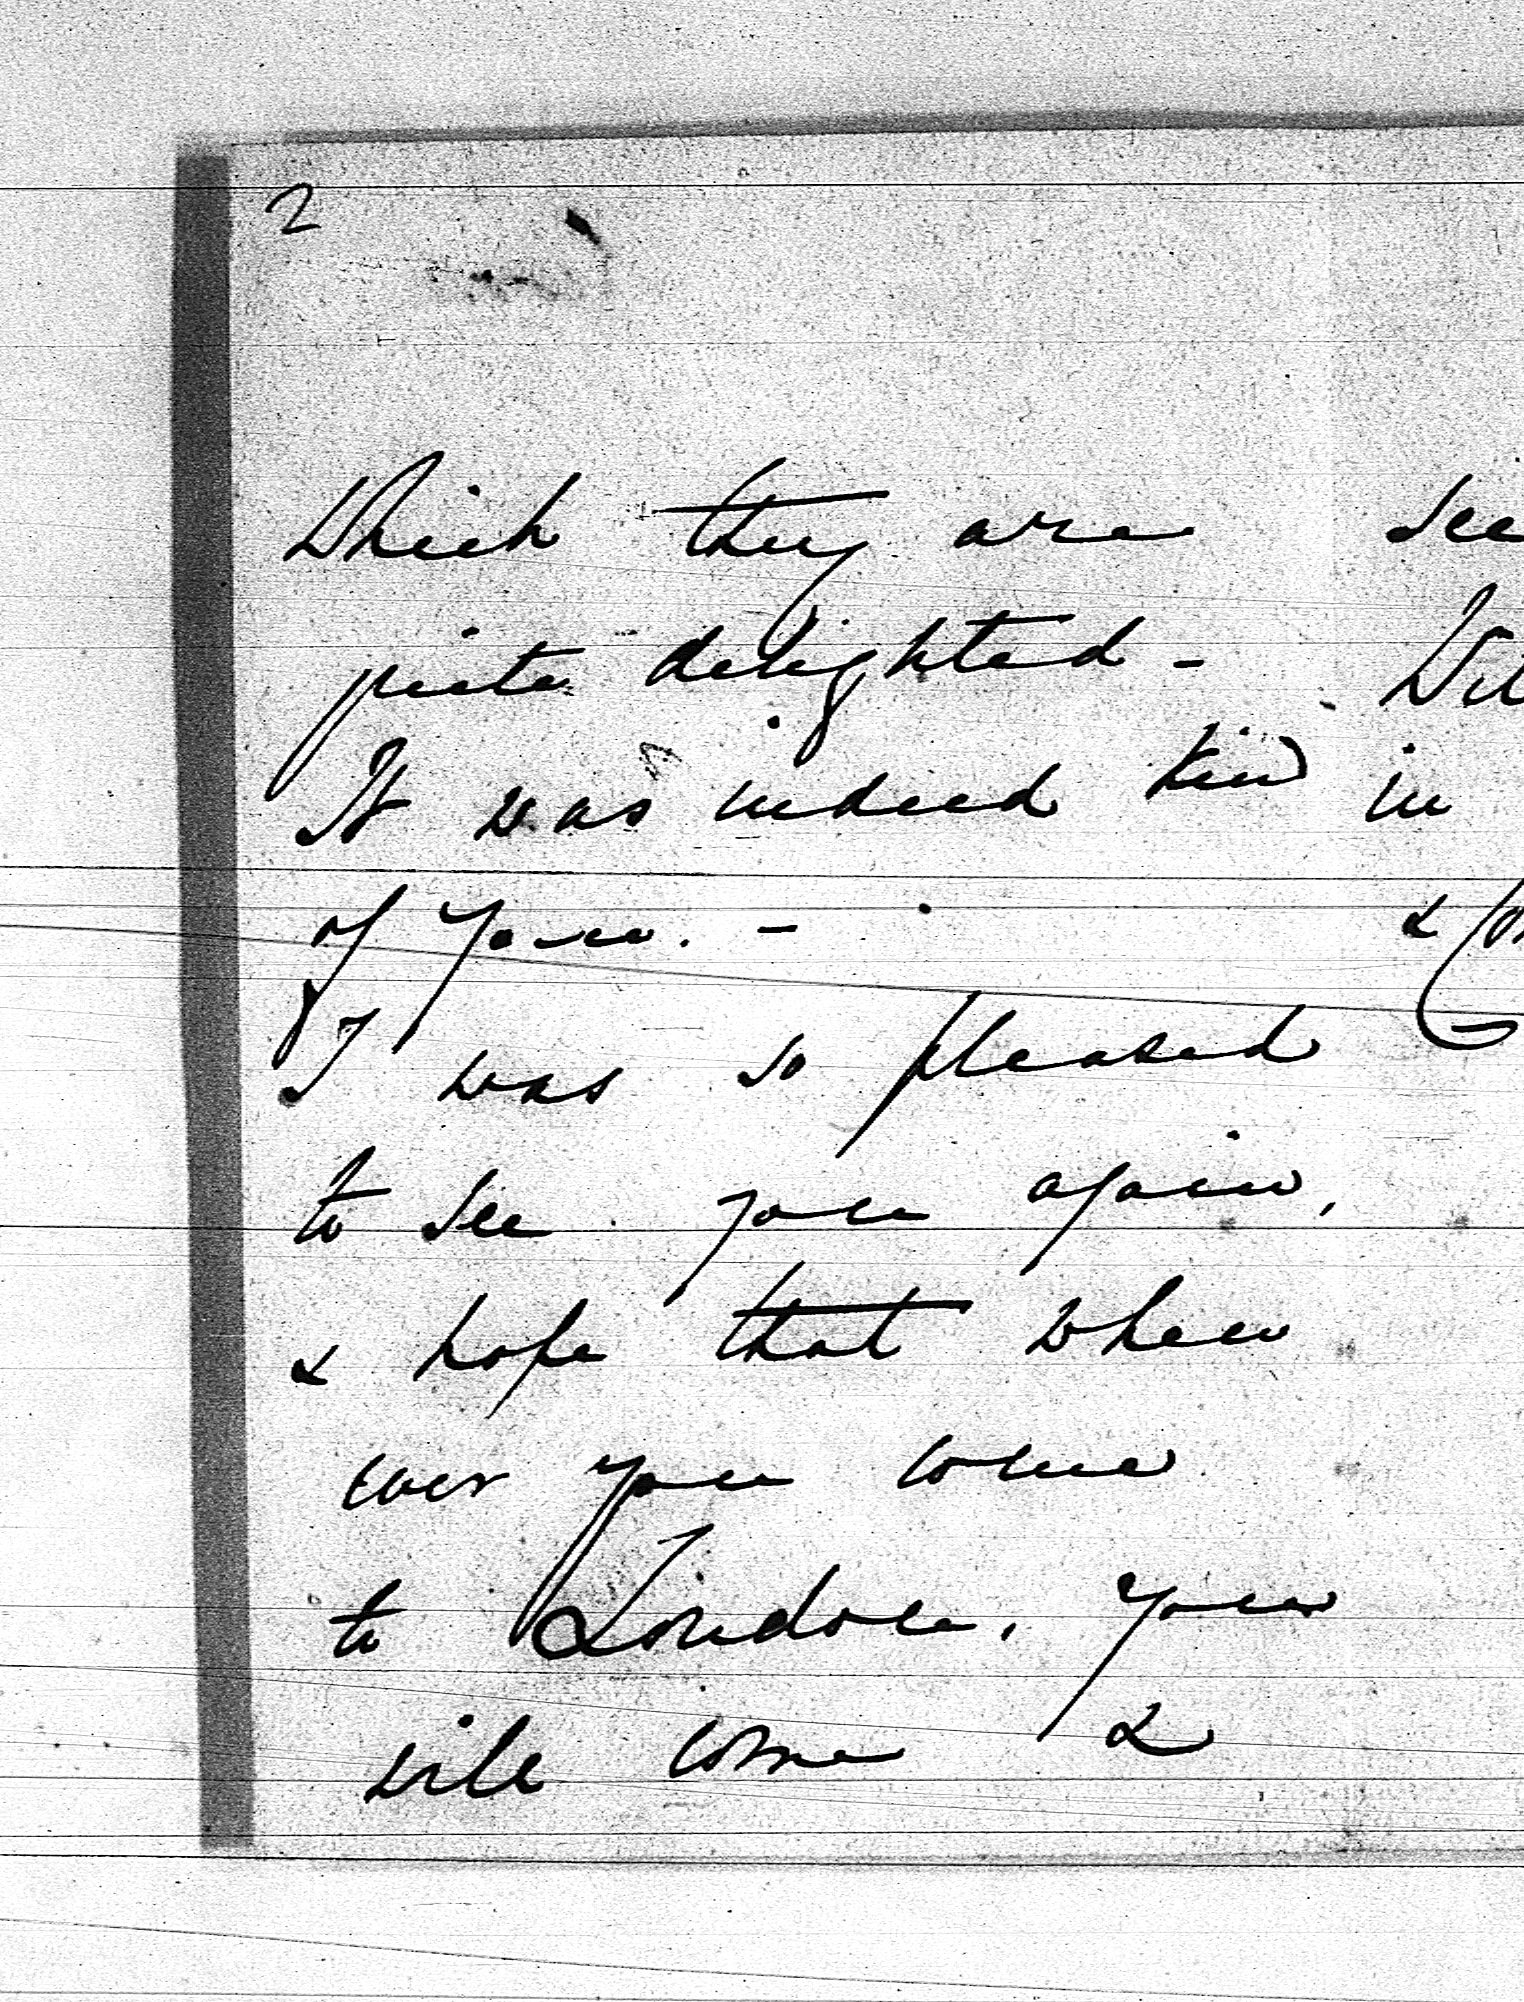 2
Which they are
quite delighted -
It was indeed kind
of you. -
I was so pleased
to see you again,
& hope that when
ever you come
to London, you
will come &
see
in
&